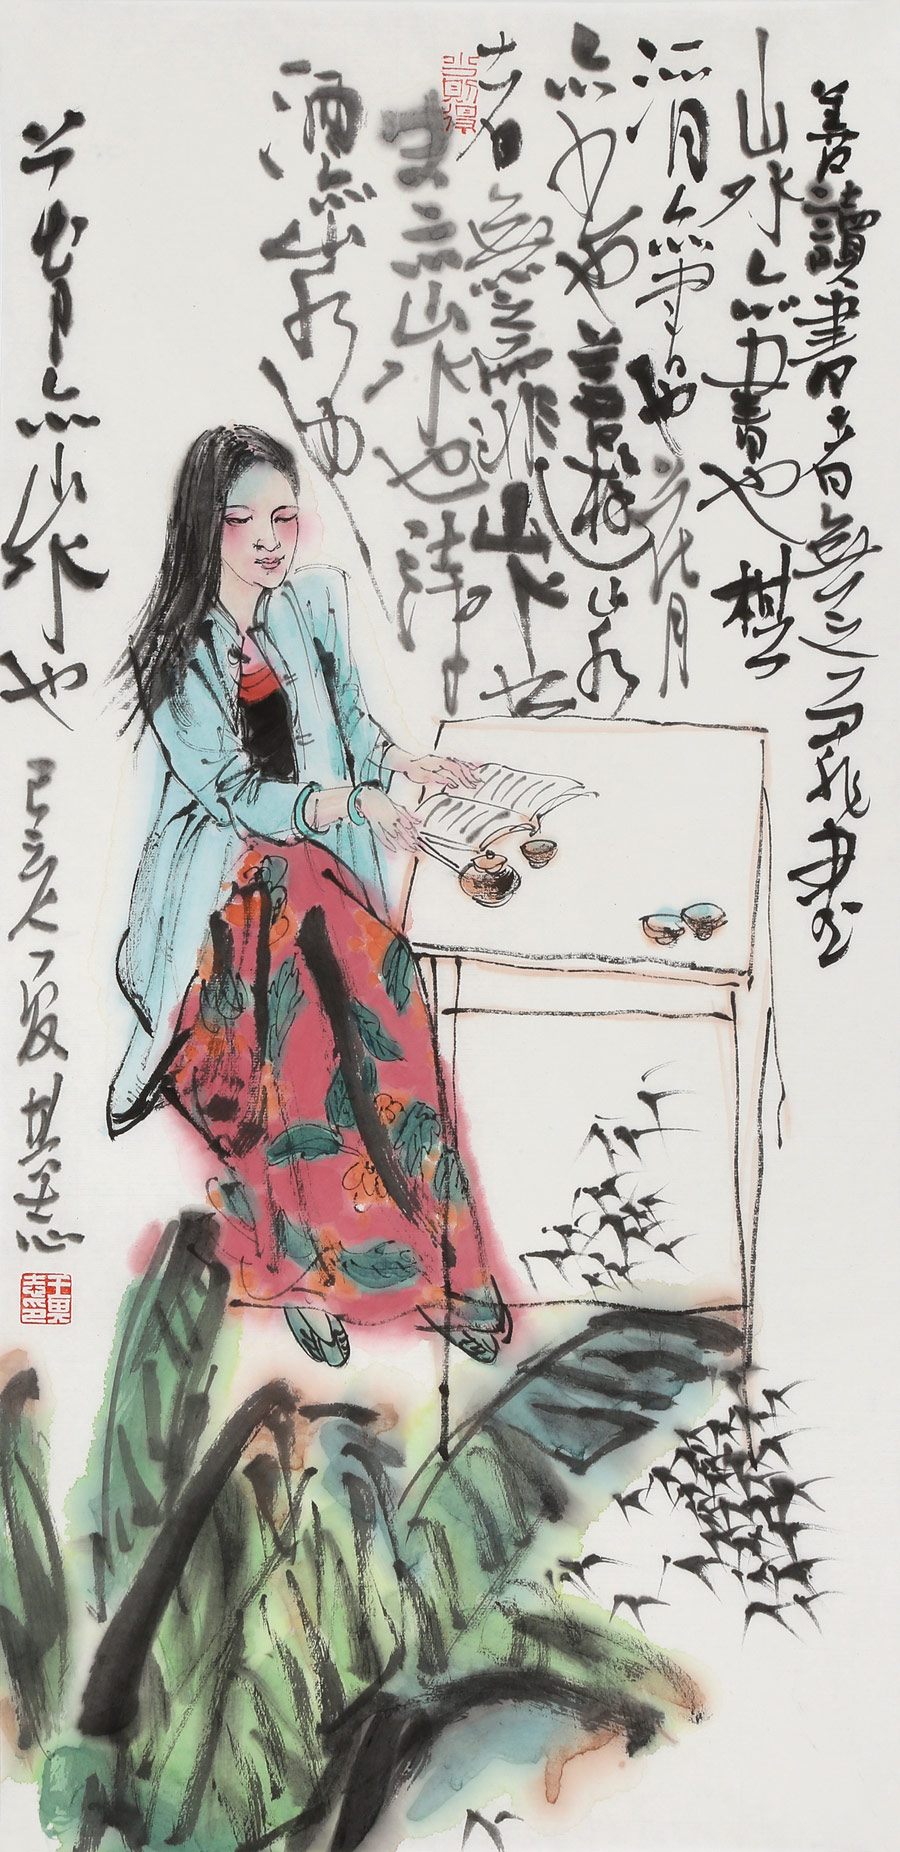 善讀書者無之而非书
山水亦書也棋
酒月亦書也花月
亦书也善遊山水
者無之而非山水书
史亦山水也诗
酒亦山水也
花月亦山水也 己亥夏其志